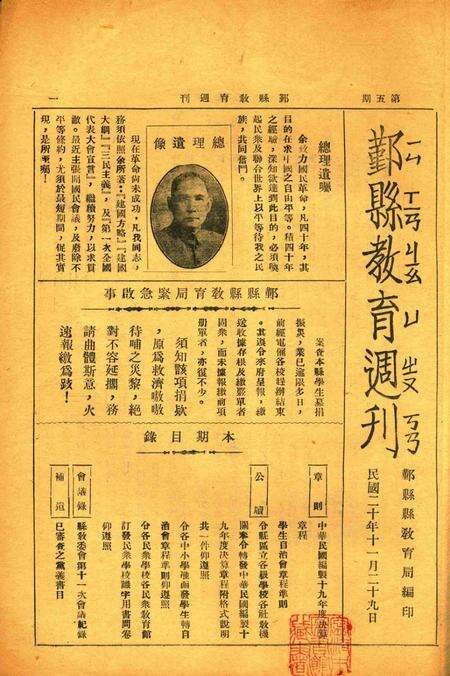 第五期
鄞縣教育週刊
一
鄞縣教育週刊
鄞縣縣教育局編印
民國二十年十一月二十九日
總理遺囑
余致力國民革命，凡四十年，其
目的在求中國之自由平等。積四十年
之經驗，深知欲達到此目的，必須喚
起民眾及聯合世界上以平等待我之民
族，共同奮鬥。
總理遺像
現在革命尚未成功，凡我同志，
務須依照余所著：『建國方略』『建國
大綱』『三民主義』，及『第一次全國
代表大會宣言』，繼續努力，以求貫
徹。最近主張開國民會議，及廢除不
平等條約，尤須於最短期間，促其實
現，是所至囑！
鄞縣縣教育局緊急啟事
業查本縣學生募捐
振災，業已逾限多日，
前經電催各校趕辦結束
，並選令來府呈報，繳
送收據存根及繳募單者
固衆，而未據報繳前項
册單者，亦復不少。
須知該項捐欵
，原為救濟嗷嗷
待哺之災黎，絕
對不容延擱，務
請曲體斯意，火
速報繳為荷！
本期目錄
章則
中華民國編製十九年度決算
章程
學生自治會章程準則
公牘
令縣區立各級學校各社教機
關奉令轉發中華民國編製十
九年度決算章程附格式說明
共一件仰遵照
令各中小學據函發學生轉自
治會章程準則仰遵照
令各民衆學校各民衆教育館
訂發民衆學校識字用書問卷
仰遵照
會議錄
縣敎委會第十一次會議紀錄
補遺
已審查之黨義書目